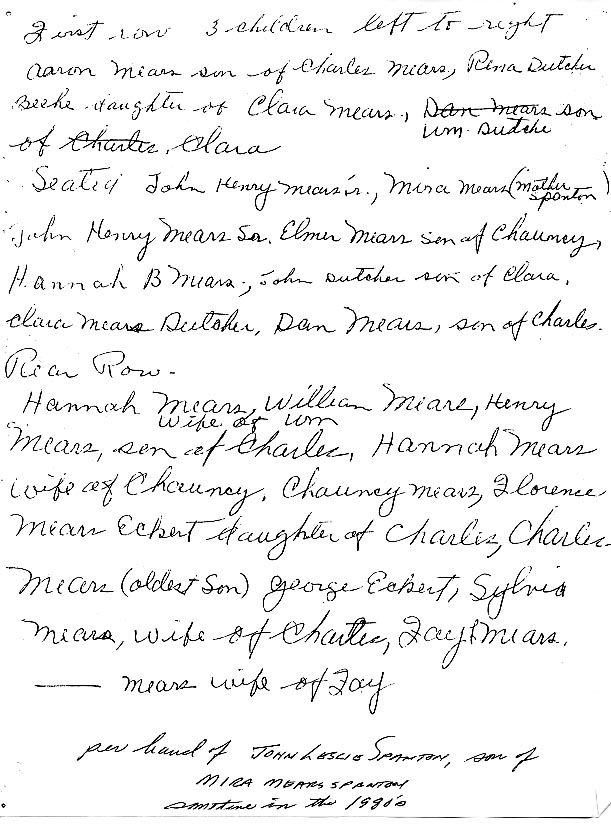 First row 3 children left to right
Aaron Mears son of Charles Mears, Rena Dutcher
Beebe daughter of Clara Mears, Dan Mears son
Wm. Dutche
of Charles, Clara
Seated John Henry Mears Jr., Mira Mears (mother
Spanton)
John Henry Mears Sr. Elmer Mears son of Chauncy,
Hannah B Mears, John Dutcher son of Clara,
Clara Mears Dutcher, Dan Mears, son of Charles.
Rear Row-
Hannah Mears, William Mears, Henry
wife of Wm
Mears, son of Charles, Hannah Mears
wife of Chauncy, Chauncy Mears, Florence
Mears Eckert daughter of Charles, Charles
Mears (oldest son) George Eckert, Sylvia
Mears, wife of Charles, Fay Mears.
—— Mears wife of Fay
per hand of John Leslie Spanton, son of
Mira Mears Spanton
sometime in the 1980's